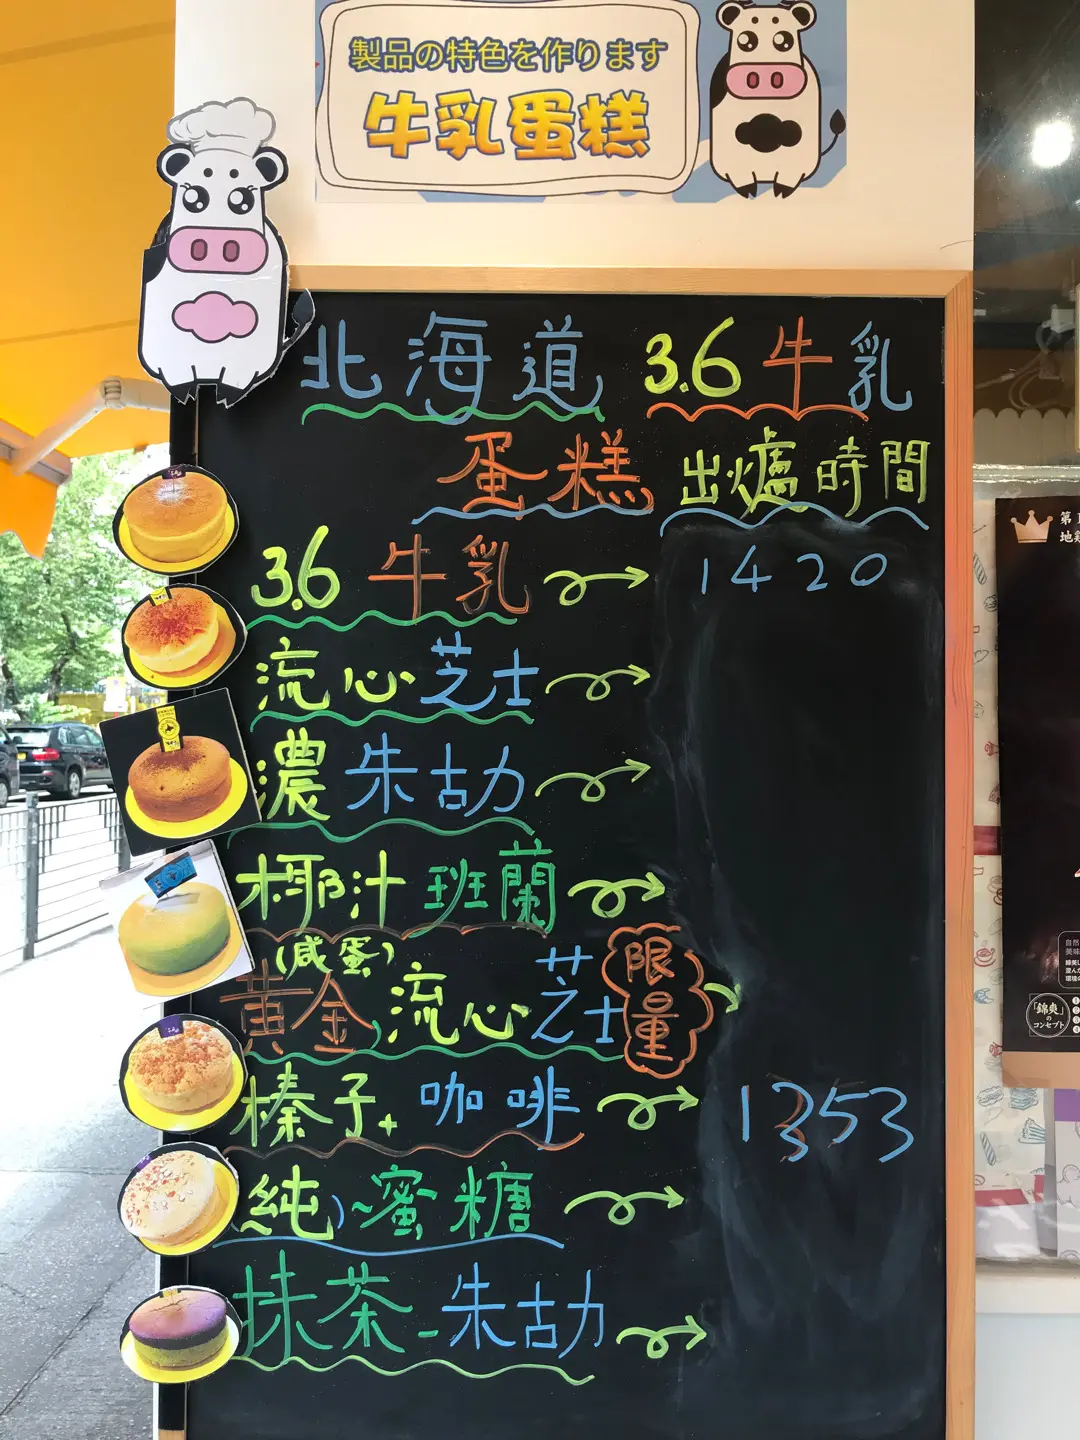 製品の特色を作ります
牛乳蛋糕
北海道 3.6牛乳
蛋糕 出爐時間
3.6 牛乳 1420
流心芝士
濃朱古力
椰汁班蘭
(咸蛋)
黃金流心芝士 限量
榛子+咖啡 1353
純~蜜糖
抹茶-朱古力
自然
美味
「錦爽」
の
コンセプト